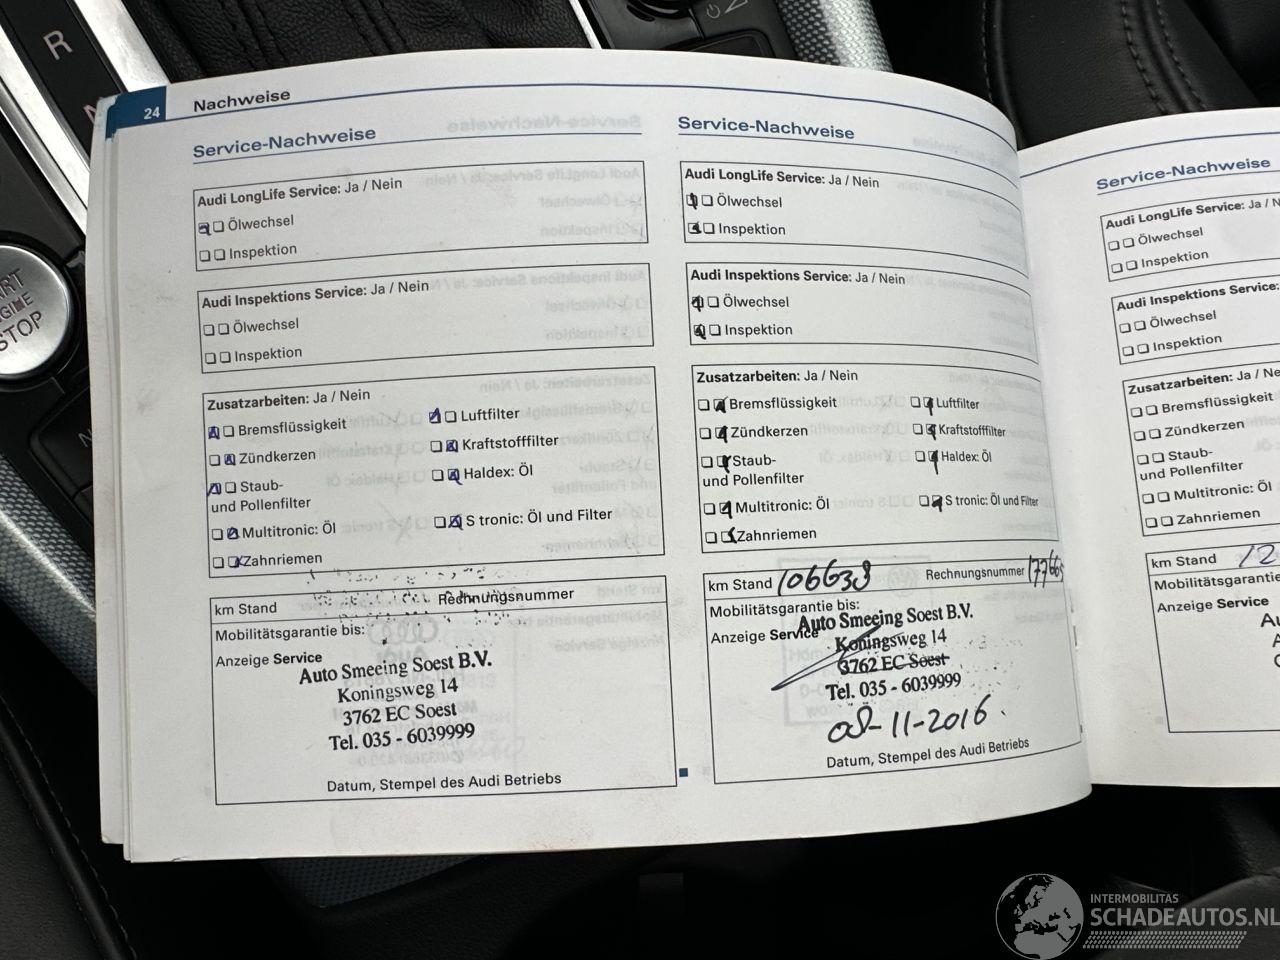 R
START
ENGINE
STOP
24 Nachweise
Service-Nachweise
Audi LongLife Service: Ja / Nein
Ölwechsel
Inspektion
Audi Inspektions Service: Ja / Nein
Ölwechsel
Inspektion
Zusatzarbeiten: Ja / Nein
Bremsflüssigkeit
Luftfilter
Zündkerzen
Kraftstofffilter
Staub-
und Pollenfilter
Haldex: Öl
Multitronic: Öl
S tronic: Öl und Filter
Zahnriemen
km Stand
Rechnungsnummer
Mobilitätsgarantie bis:
Anzeige Service
Auto Smeeing Soest B.V.
Koningsweg 14
3762 EC Soest
Tel. 035 - 6039999
Datum, Stempel des Audi Betriebs
Service-Nachweise
Audi LongLife Service: Ja / Nein
Ölwechsel
Inspektion
Audi Inspektions Service: Ja / Nein
Ölwechsel
Inspektion
Zusatzarbeiten: Ja / Nein
Bremsflüssigkeit
Luftfilter
Zündkerzen
Kraftstofffilter
Staub-
und Pollenfilter
Haldex: Öl
Multitronic: Öl
S tronic: Öl und Filter
Zahnriemen
km Stand 106639
Rechnungsnummer
Mobilitätsgarantie bis:
Anzeige Service
Auto Smeeing Soest B.V.
Koningsweg 14
3762 EC Soest
Tel. 035 - 6039999
08-11-2016
Datum, Stempel des Audi Betriebs
Service-Nachweise
Audi LongLife Service: Ja / N
Ölwechsel
Inspektion
Audi Inspektions Service:
Ölwechsel
Inspektion
Zusatzarbeiten: Ja / Ne
Bremsflüssigkeit
Zündkerzen
Staub-
und Pollenfilter
Multitronic: Öl
Zahnriemen
km Stand 12
Mobilitätsgarantie
Anzeige Service
INTERMOBILITAS
SCHADEAUTOS.NL